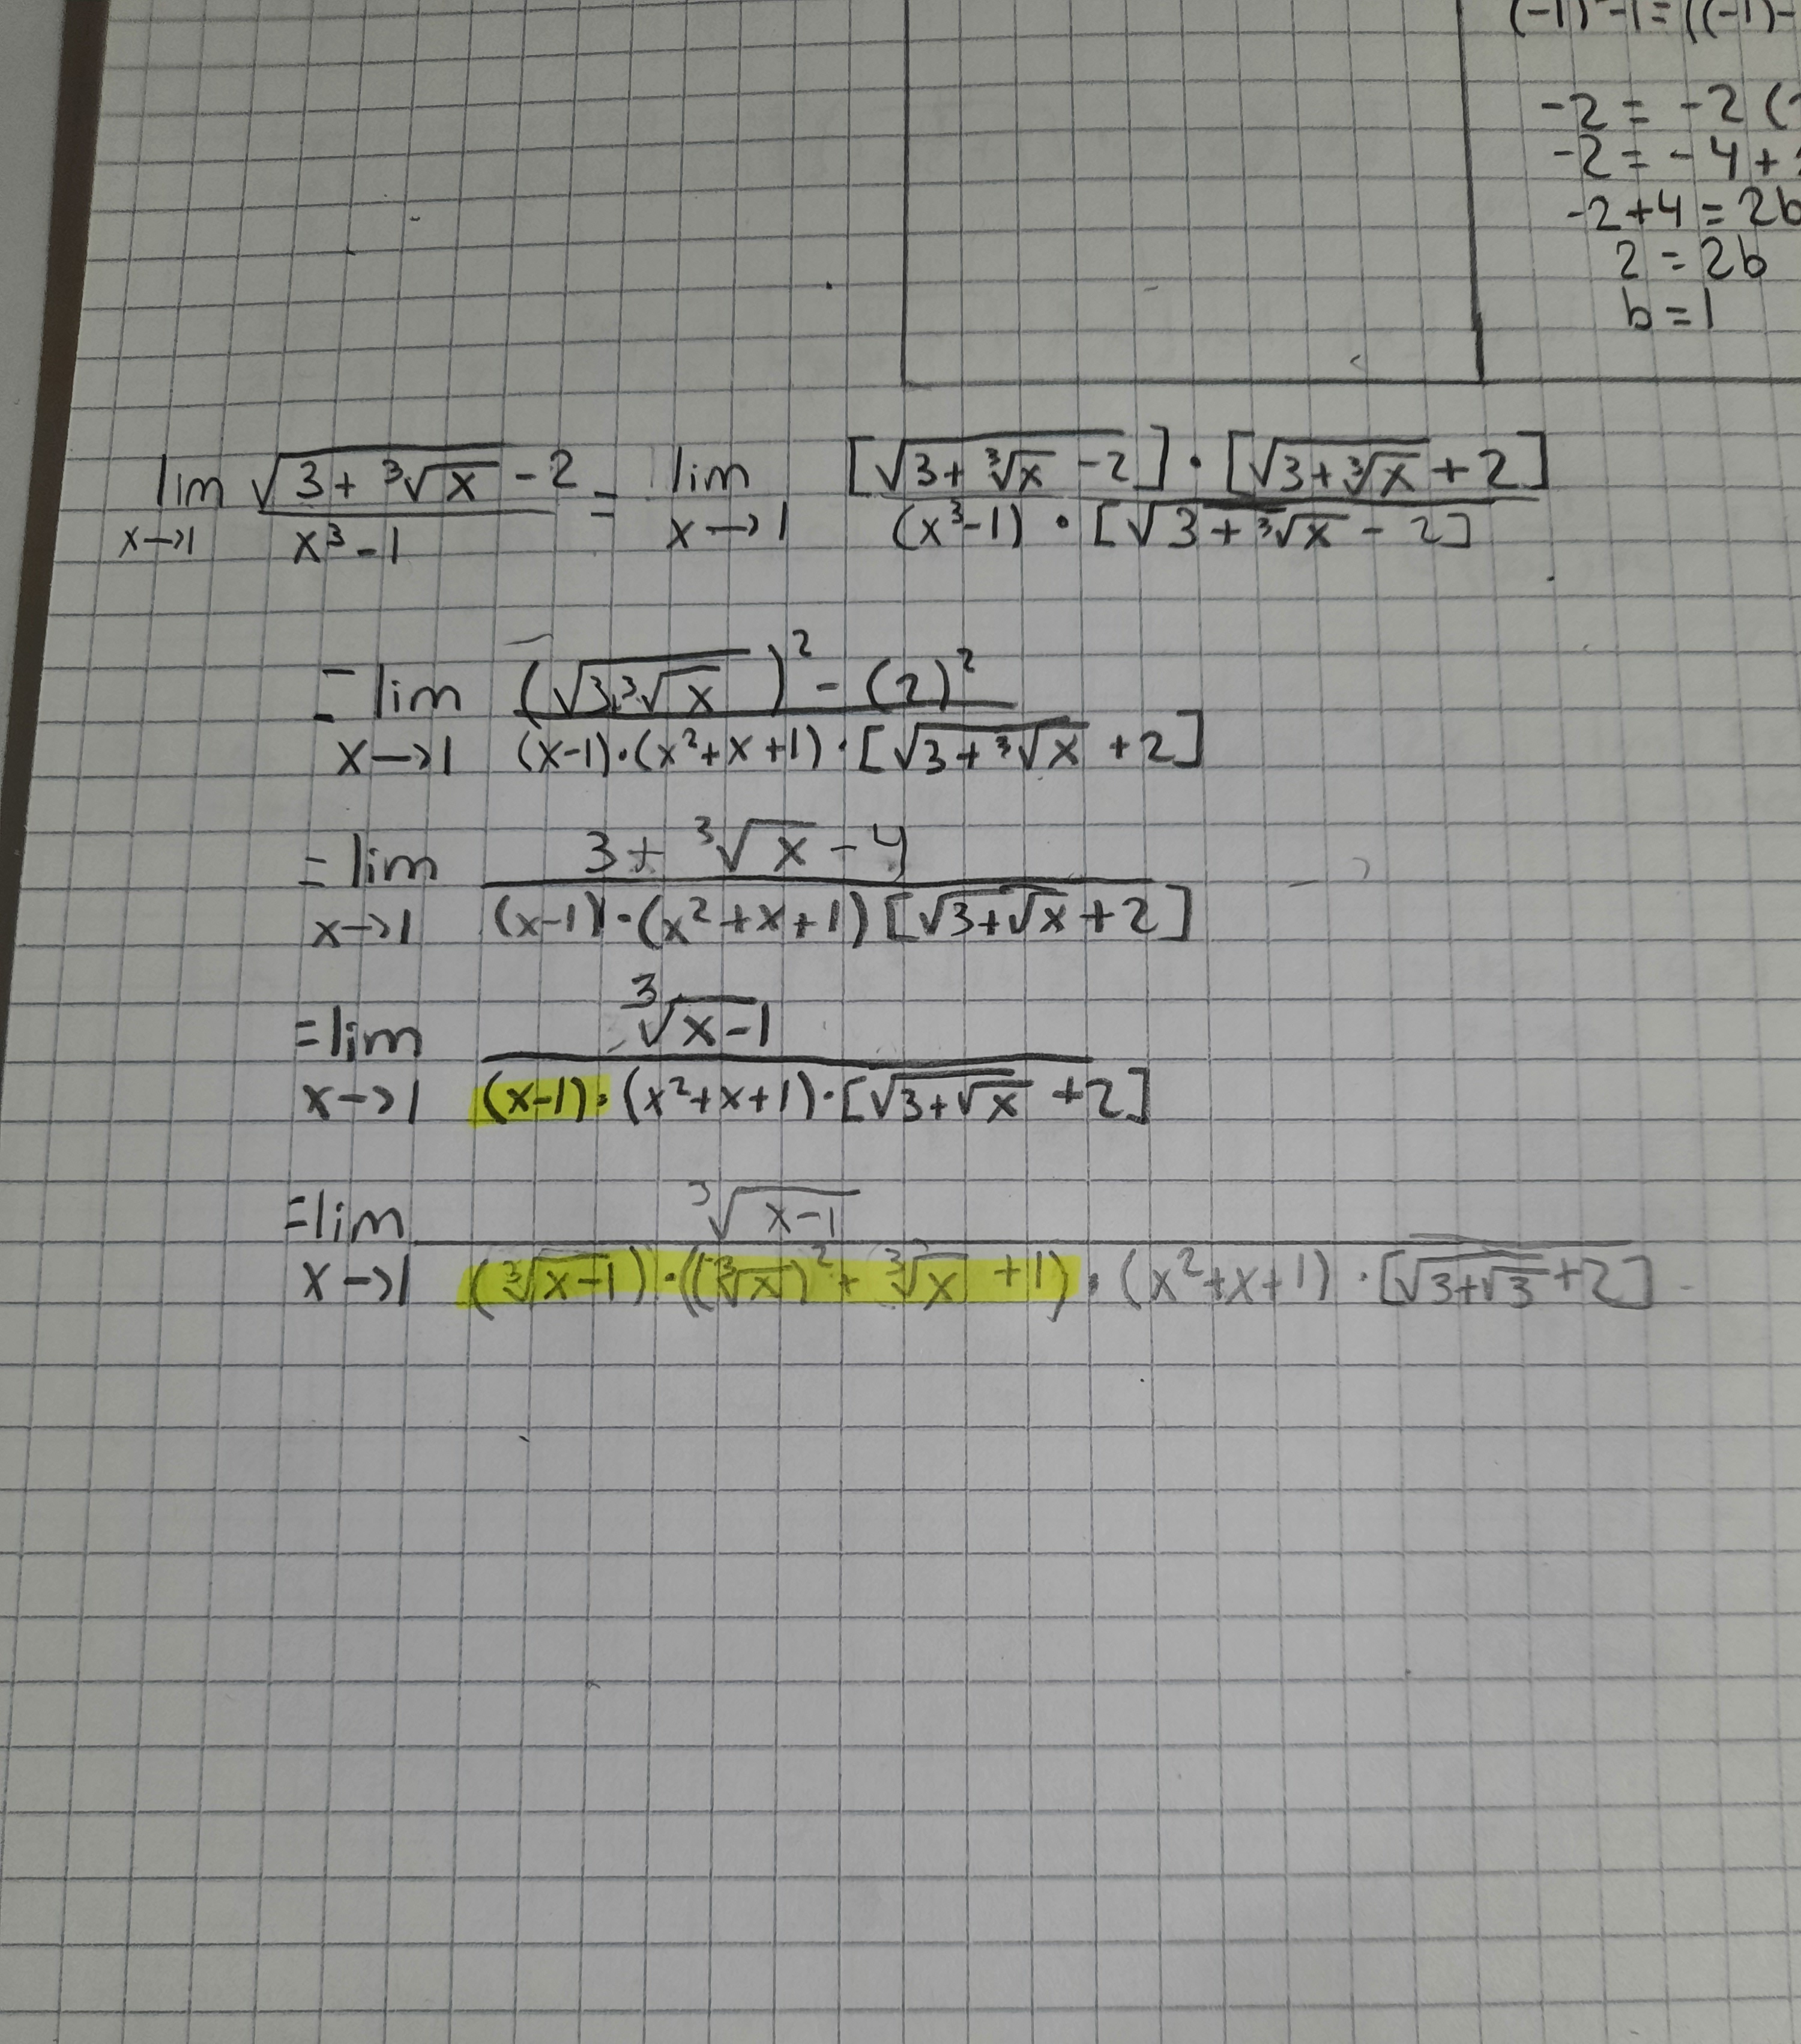 (-1) -1 = ((-1)-
-2 = -2 (
-2 = -4 +
-2+4 = 2b
2 = 2b
b = 1
lim x→1 (√(3+∛x) -2)/(x³-1) = lim x→1 ([√(3+∛x -2)]·[√(3+∛x)+2])/((x³-1)·[√(3+∛x) - 2])
= lim x→1 ((√(3+∛x))² - (2)²)/((x-1)·(x²+x+1)·[√(3+∛x) +2])
= lim x→1 (3+ ∛x - 4)/((x-1)·(x²+x+1)[√(3+√x)+2])
= lim x→1 ∛(x-1)/((x-1)·(x²+x+1)·[√(3+√x) +2])
= lim x→1 ∛(x-1)/((∛(x-1))·((∛x)²+ ∛x +1)·(x²+x+1)·[√(3+√3)+2])